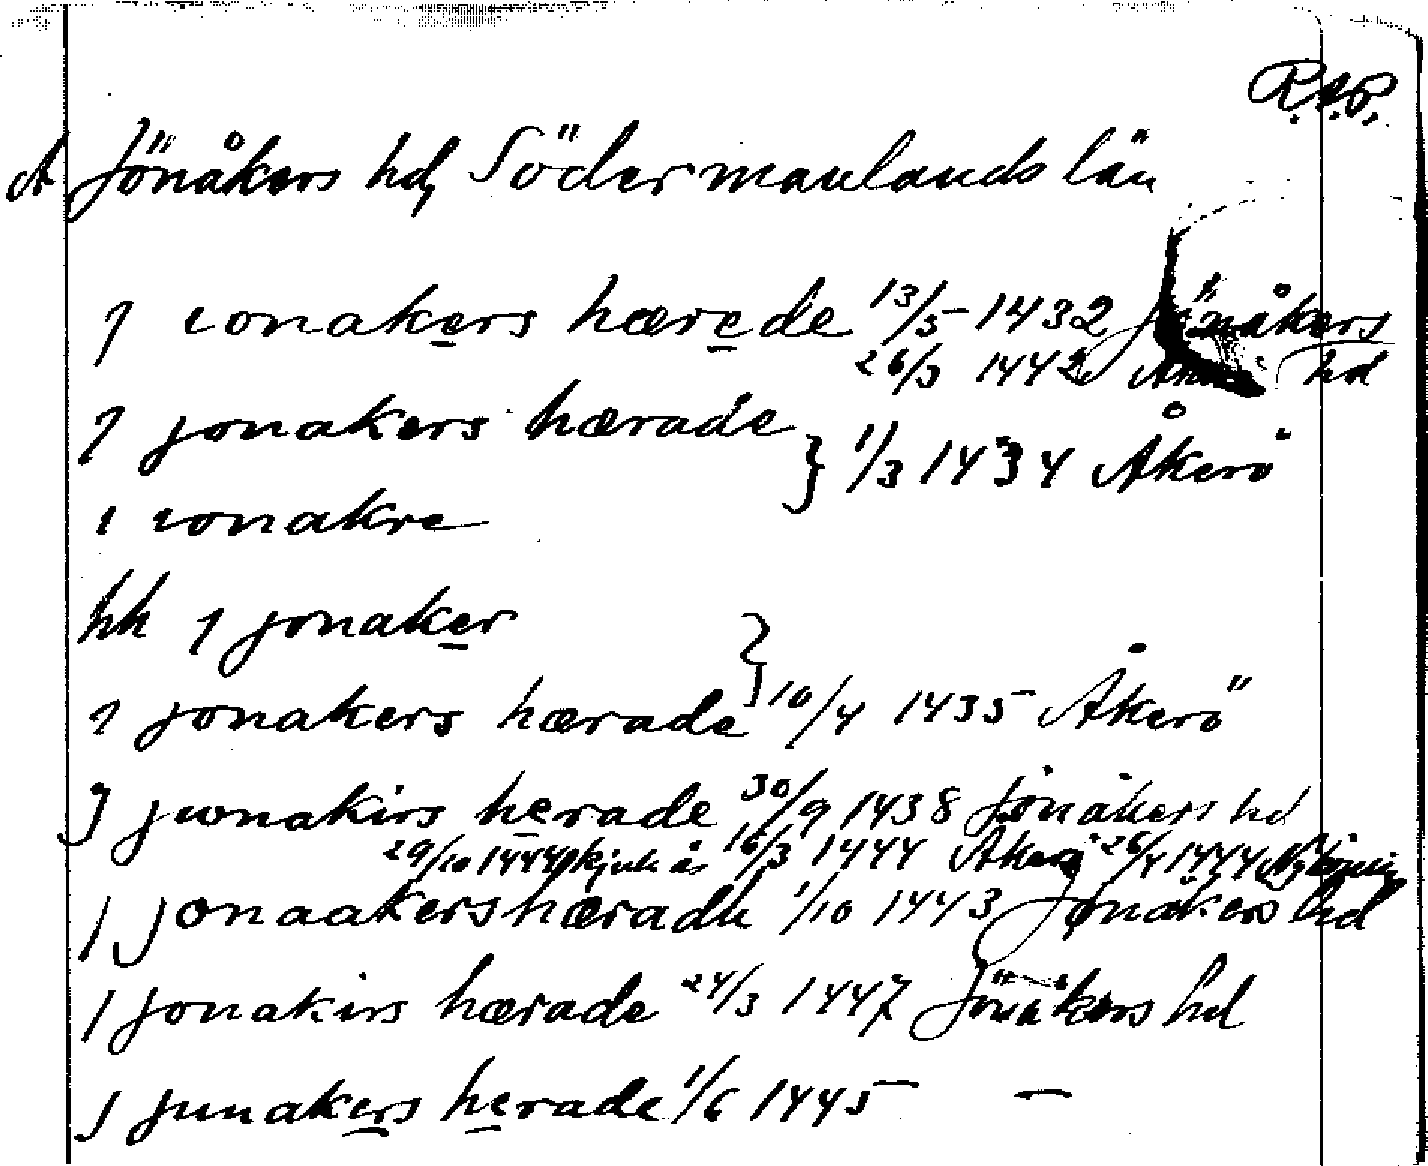 R.A.P.
A Jönåkers hd, Södermanlands län
j ionakers hærede 13/5 1432 Jönåkers hd
26/3 1442
j jonakers hærade } 1/3 1434 Åkerö
i ionakre
hh j jonaker
j jonakers hærade } 10/4 1435 Åkerö
J jwonakirs herade 30/9 1438 Jönåkers hd
29/10 1444 16/3 1444 Åkerö 26/4 1444
j jonaakers hæradh 1/10 1443 Jönåkers hd
j jonakirs hærade 24/3 1447 Jönåkers hd
j junakers herade 1/6 1445 —